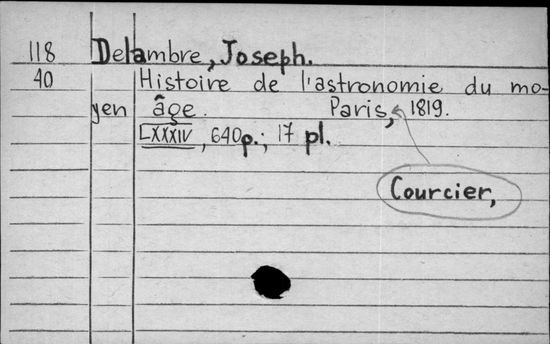 118 Delambre, Joseph.
40 Histoire de l'astronomie du mo-
yen âge. Paris, 1819.
LXXXIV, 640p.; 17 pl.
Courcier,